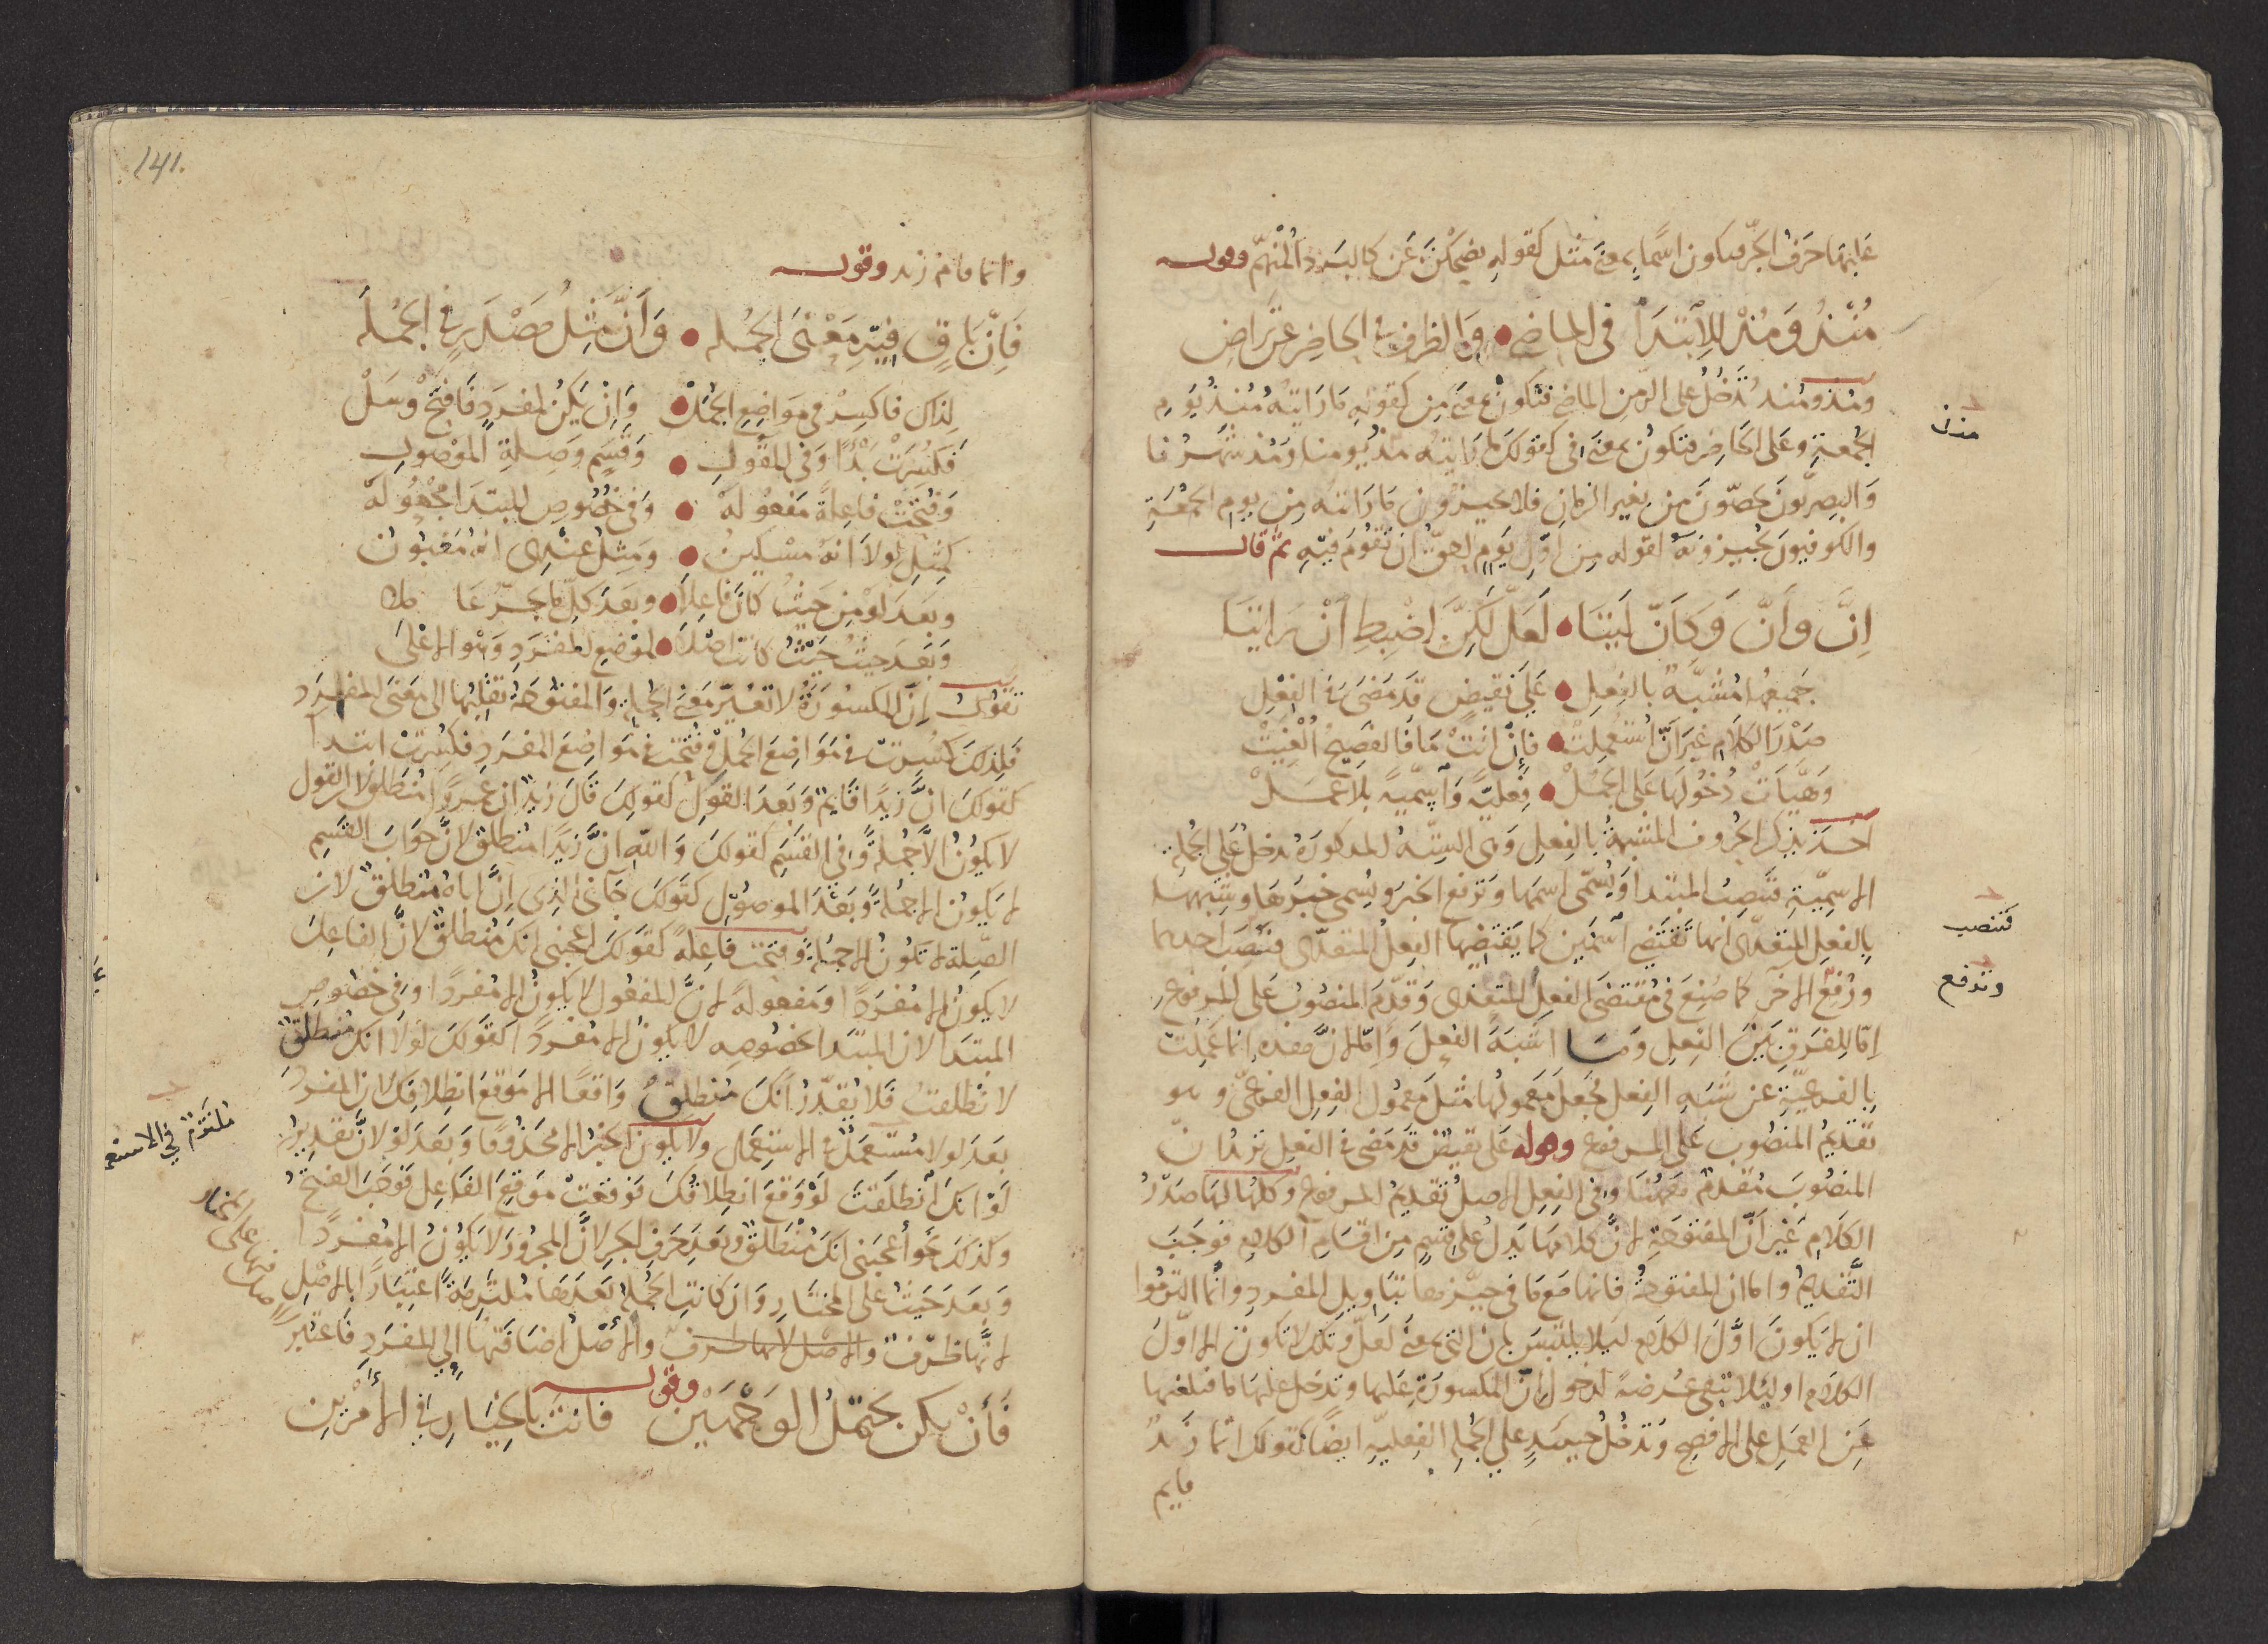 عليها حرف الجر فيكون اسما بمعنى مثل كقوله يضحكن عن كالبرد المنهم وقوله
منذ ومذ للابتدا في الماضي • والظرف في الحاضر عن تراض
ومذ ومنذ تدخل على الزمن الماضي فتكون بمعنى من كقوله ما رايته منذ يوم
الجمعة وعلى الحاضر فتكون بمعنى في كقولك ما رايته مذ يومنا ومذ شهرنا
والبصريون يخصون من بغير الزمان فلا يجيزون ما رايته من يوم الجمعة
والكوفيون يجيزونه لقوله من اول يوم احق ان تقوم فيه ثم قال
إنّ وأنّ وكأنّ ليتا • لعلّ لكنّ اضبط ان رايتا
جميعها مشبهة بالفعل • على نقيض قد مضى في الفعل
صدر الكلام غير أنّ استعملت • فإن اتت ما فالفصيح الغيت
وهيات دخولها على الجمل • فعلية واسمية بلا عمل
اخذ يذكر الحروف المشبهة بالفعل وهي الستة المذكورة تدخل على الجملة
الاسمية فتنصب المبتدا ويسمى اسمها وترفع الخبر ويسمى خبرها وشبهها
بالفعل المتعدي انها تقتضي اسمين كما يقتضيها الفعل المتعدي فنصب احدهما
ورفع الاخر كما صنع في مقتضى الفعل المتعدي وقدم المنصوب على المرفوع
اما للفرق بين الفعل وما اشبه الفعل واما لان هذه انما عملت
بالفرعية عن شبه الفعل فجعل معمولها مثل معمول الفعل الفرعي وهو
تقديم المنصوب على المرفوع وقوله على نقيض قد مضى في الفعل يريد ان
المنصوب مقدم ههنا وفي الفعل الاصل تقديم المرفوع وكلها لها صدر
الكلام غير أنّ المفتوحة لان كلا منها يدل على قسم من اقسام الكلام فوجب
التقديم واما ان المفتوحة فانها مع ما في حيزها بتاويل المفرد وانما التزموا
ان لا يكون اول الكلام ليلا يلتبس بان التي بمعنى لعل وتلك لا تكون الا اول
الكلام او ليلا تبقى عرضة لدخول إنّ المكسورة عليها وتدخل عليها ما فتلغيها
عن العمل على الافصح وتدخل حينئذ على الجمل الفعلية ايضا كقولك انما زيد
قايم
فتنصب
وترفع
141.
وانما قام زيد وقوله
فإنّ باق فيه معنى الجمله • وأنّ مثل مصدر في الجمله
لذاك فاكسر في مواضع الجمل • وان يكن لمفرد فافتح وسل
فكسرت بدا وفي المقول • وقسم وصلة الموصول
وفتحت فاعلة مفعوله • وفي خصوص المبتدا مجعوله
كمثل لولا انه مسكين • ومثل عندي انه مغبون
وبعد لو من حيث كان فاعلا • وبعد كل ما يجر عاملا
وبعد حيث حيث كانت اصلا • لموضع المفرد وهو الاعلى
تقول إنّ المكسورة لا تغير معنى الجملة والمفتوحة تقلبها الى معنى المفرد
فلذلك كسرت في مواضع الجمل وفتحت في مواضع المفرد فكسرت ابتدا
كقولك ان زيدا قايم وبعد القول كقولك قال زيد ان عمروا منطلق لان القول
لا يكون الا جملة وفي القسم كقولك والله ان زيدا منطلق لان جواب القسم
لا يكون الا جملة وبعد الموصول كقولك جاني الذي ان اباه منطلق لان
الصلة لا تكون الا جملة وفتحت فاعلة كقولك اعجبني انك منطلق لان الفاعل
لا يكون الا مفردا ومفعوله لان المفعول لا يكون الا مفردا وفي خصوص
المبتدا لان المبتدا بخصوصه لا يكون الا مفردا كقولك لولا انك منطلق
لانطلقت فلا يقدر انك منطلق واقعا الا موقع انطلاقك لان المفرد
بعد لولا مستعمل في الاستعمال ولا يكون الخبر الا محذوفا وبعد لو لان تقديره
لو انك انطلقت لو وقع انطلاقك فوقعت موقع الفاعل فوجب الفتح
وكذلك نحو اعجبني انك منطلق وبعد حرف الجر لان المجرور لا يكون الا مفردا
وبعد حيث على المختار وان كانت الجملة بعدها ملتزمة اعتبارا بالاصل
لانها ظرف والاصل لانها ظرف والاصل اضافتها الى المفرد فاعتبر
وقوله
فأن يكن يحتمل الوجهين فانت بالخيار في الامرين
ملتزم في الاستعمال